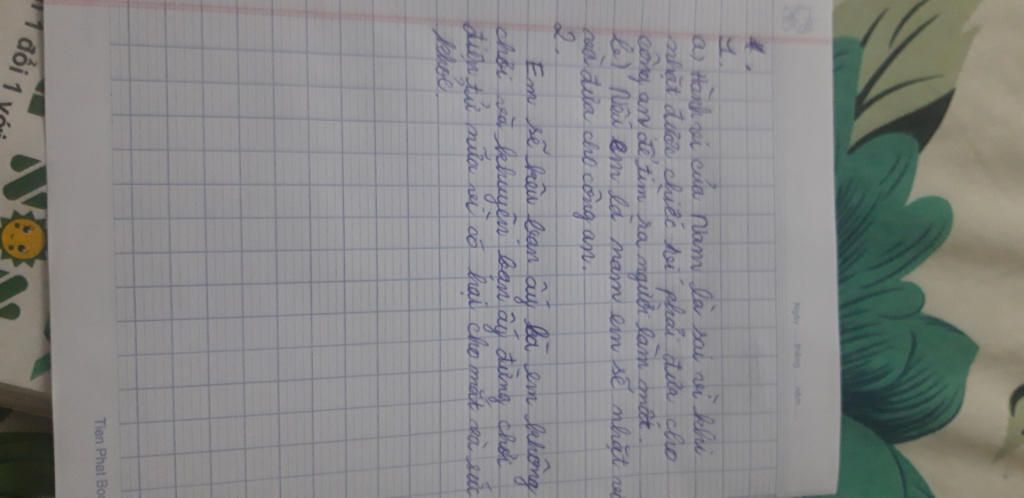 1.
a) Hành vi của Nam là sai vì khi
nhặt được chiếc ví phải đưa cho
công an để tìm ra người làm mất.
b) Nếu em là nam em sẽ nhặt
rồi đưa cho công an.
2.
Em sẽ bảo bạn ấy là em không
chơi và khuyên bạn ấy đừng chơi
điện tử nữa vì có hại cho mắt và sức
khỏe.
Ngày tháng năm
Tien Phat Boo
1 đổi 1 với